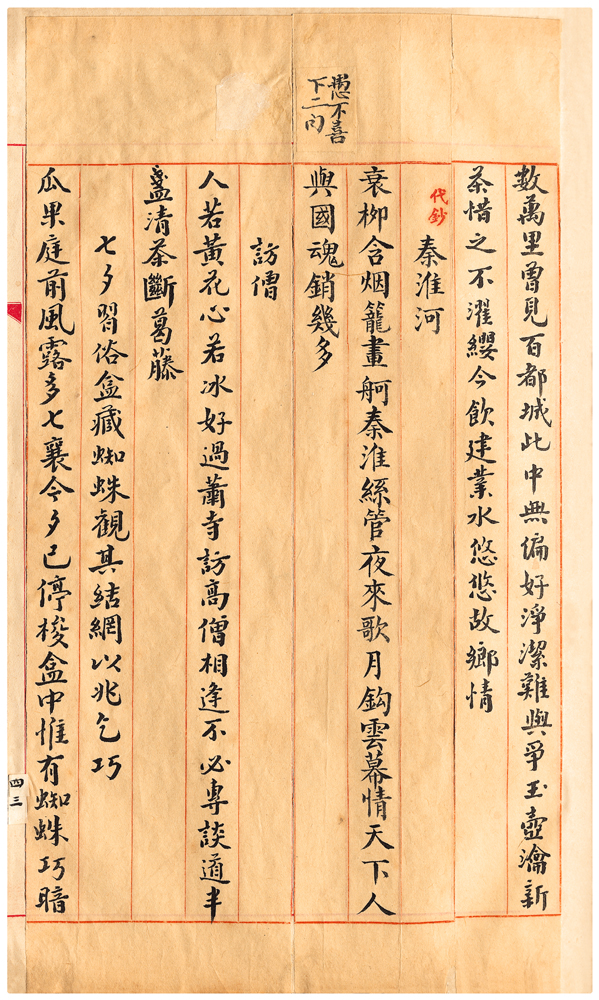 數萬里曾見百都城此中無偏好淨潔難與爭玉壺瀹新
茶惜之不濯纓今飲建業水悠悠故鄉情
代鈔
秦淮河
衰柳含烟籠畫舸秦淮絲管夜來歌月鈎雲幕情天下人
與國魂銷幾多
愚不喜
下二句
訪僧
人若黃花心若冰好過蕭寺訪高僧相逢不必專談道半
盞清茶斷葛藤
七夕習俗盒藏蜘蛛觀其結網以兆乞巧
瓜果庭前風露多七襄今夕已停梭盒中惟有蜘蛛巧暗
四三